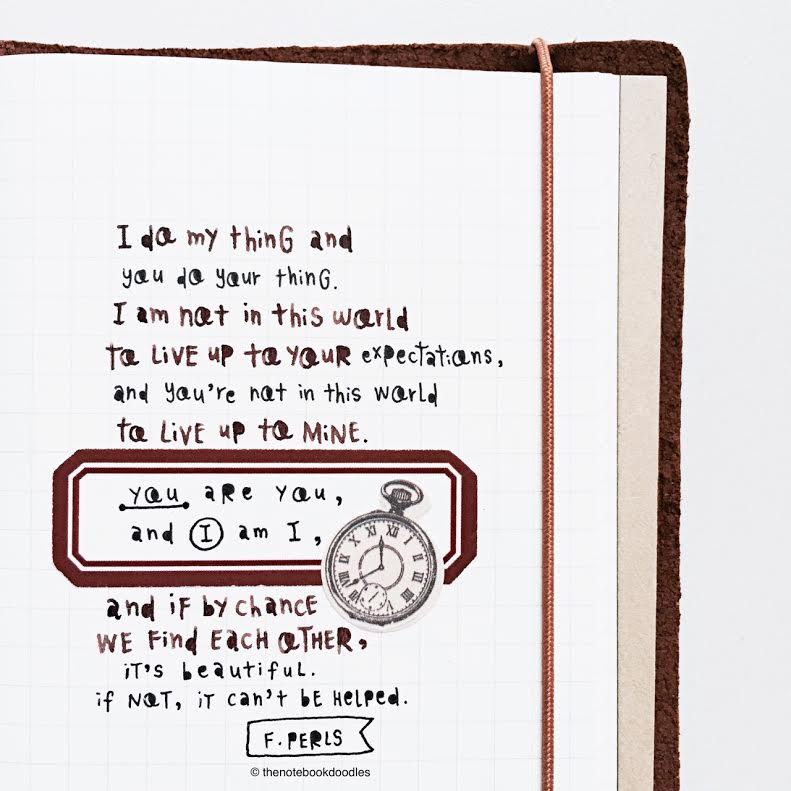 I do my thinG and
you do your thinG.
I am not in this world
to LiVE up to YouR expectations,
and you're not in this world
to LiVE up to MiNE.
you aRe you,
and I am I,
and iF by chance
WE Find EacH oTHER,
iT's beautifuL.
if NoT, iT can't bE HeLped.
F. PERLS
© thenotebookdoodles